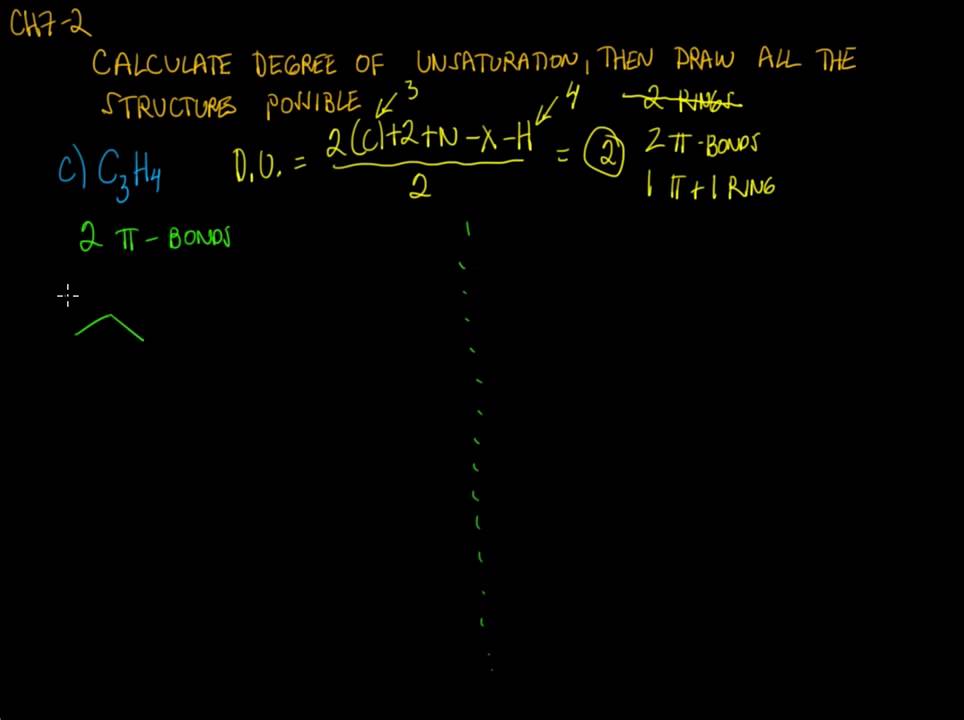 CH7-2
CALCULATE DEGREE OF UNSATURATION, THEN DRAW ALL THE
STRUCTURES POSSIBLE
3
4
2 RINGS
C) C3H4
D.U. = 2(C)+2+N-X-H / 2 = 2
2 π-BONDS
1 π + 1 RING
2 π-BONDS